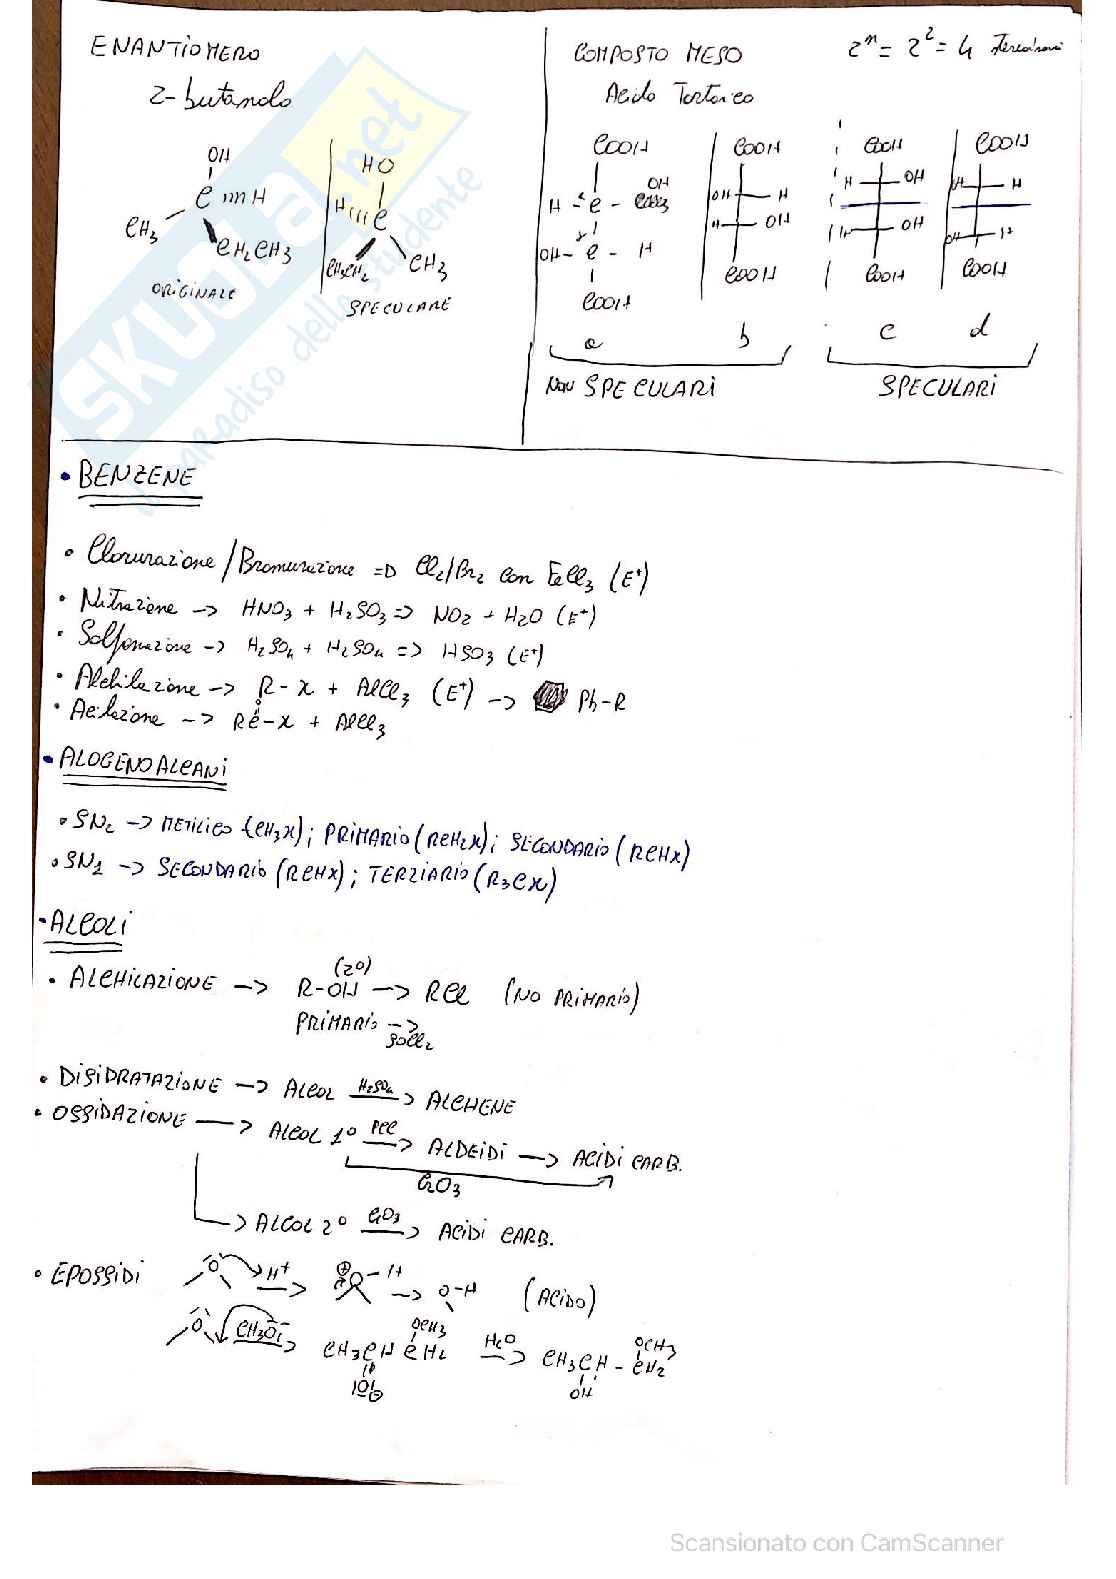 ENANTIOMERO
2-butanolo
OH
C ''''H
CH3
CH2CH3
ORIGINALE
HO
H''''C
CH3CH2
CH3
SPECULARE
COMPOSTO MESO
2ⁿ = 2² = 4
Acido Tartarico
COOH
H - C - OH
OH - C - H
COOH
a
COOH
OH H
H OH
COOH
b
NON SPECULARI
COOH
H OH
H OH
COOH
c
COOH
OH H
OH H
COOH
d
SPECULARI
• BENZENE
• Clorurazione/Bromurazione => Cl2/Br2 con FeCl3 (E+)
• Nitrazione -> HNO3 + H2SO3 => NO2 + H2O (E+)
• Solfonazione -> H2SO4 + H2SO4 => HSO3 (E+)
• Alchilazione -> R-X + AlCl3 (E+) -> Ph-R
• Acilazione -> RC-X + AlCl3
O
• ALOGENOALCANI
• SN2 -> METILICO (CH3X); PRIMARIO (RCH2X); SECONDARIO (RCHX)
• SN1 -> SECONDARIO (RCHX); TERZIARIO (R3CX)
• ALCOLI
(2°)
• ALCHILAZIONE -> R-OH -> RCl (NO PRIMARIO)
PRIMARIO ->
SOCl2
• DISIDRATAZIONE -> ALCOL H2SO4 -> ALCHENE
• OSSIDAZIONE -> ALCOL 1° PCC -> ALDEIDI -> ACIDI CARB.
CrO3
-> ALCOL 2° CrO3 -> ACIDI CARB.
• EPOSSIDI O H+ -> O-H -> O-H (ACIDO)
O CH3O -> CH3CH CH2 H2O -> CH3CH - CH2
OCH3 OCH3
OH
SKUOLA.net
il paradiso dello studente
Scansionato con CamScanner